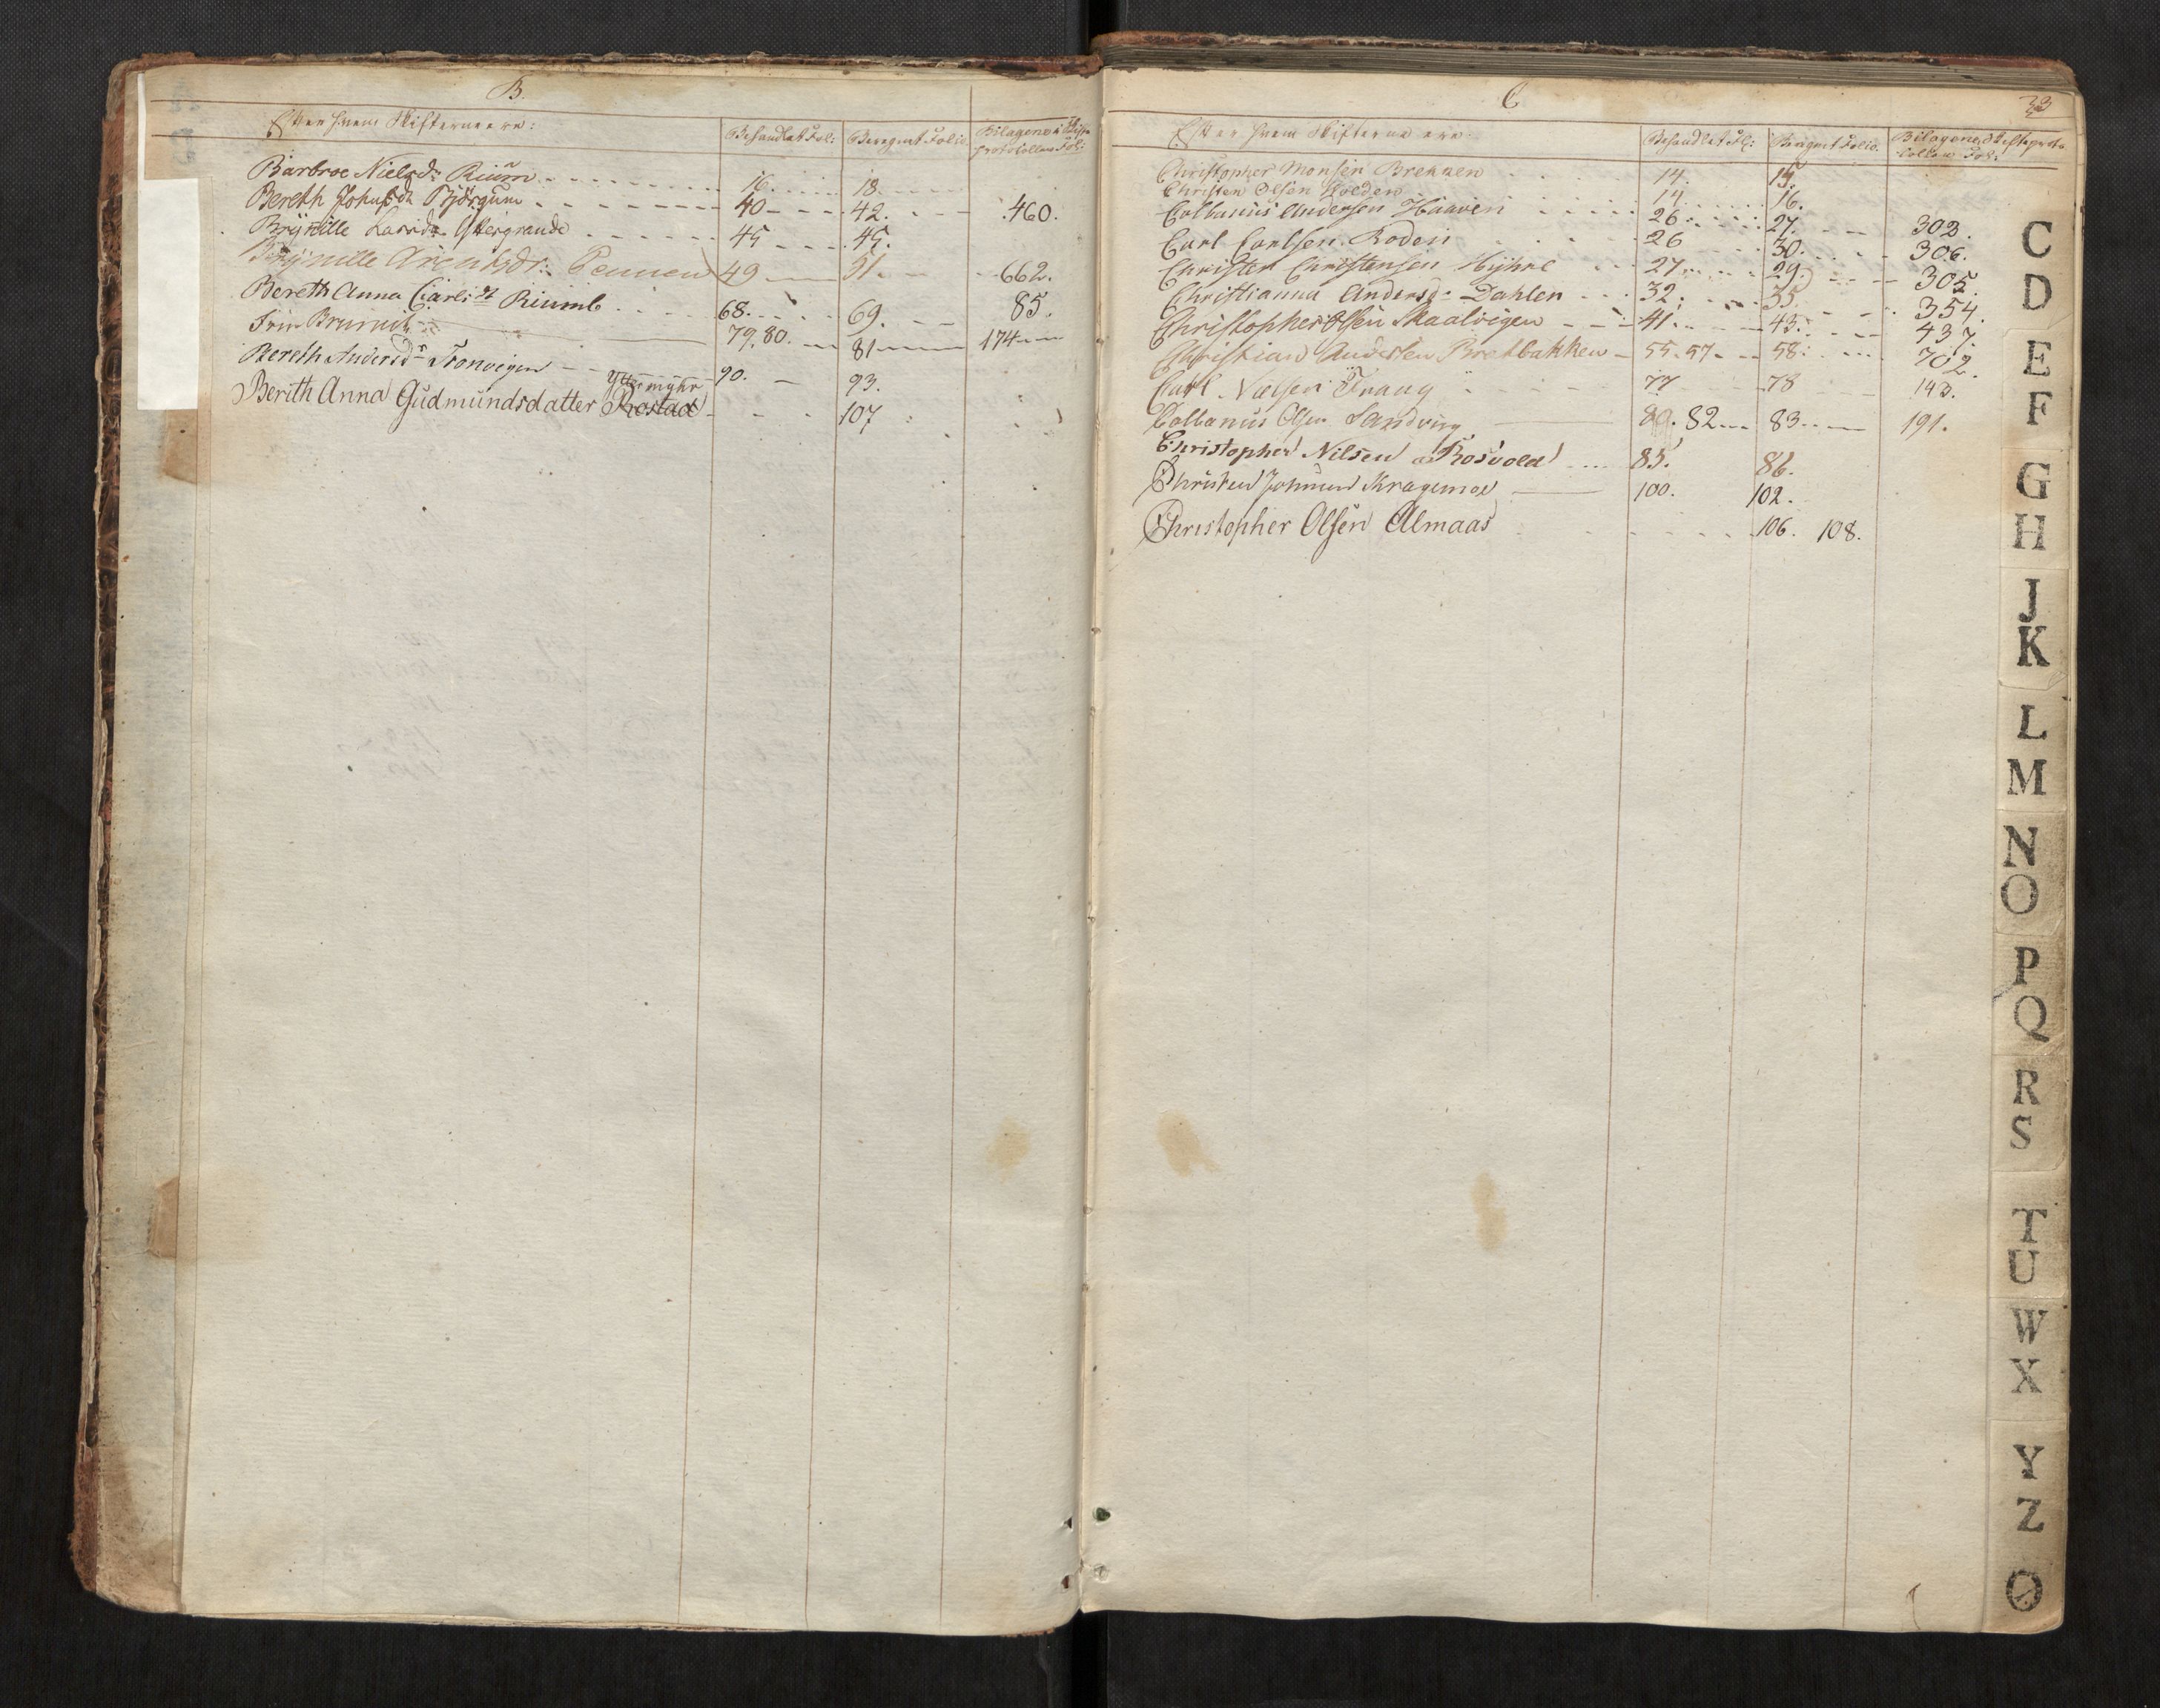 B.
Efter hvem Skifterne ere: Behandlet Fol: Beregnet Folio. Bilagene i Skifte protocollen Fol:
Barbroe Nielsdr Rium 16. 18.
Bereth Johnsdr Bjørgum 40 42. 460.
Brynille Larsdr Østergrande 45 45.
Brynille Arentsdr: Pennen 49 51. 662.
Bereth Anna Carlsdt Riumb 68. 69. 85.
79. 80. 81 174
Bereth Andersdr Tronvigen 90. 93.
Yttermyhr
Berith Anna Gudmundsdatter Rostad 107
C
33
Efter hvem Skifterne ere: Behandlet Fol: Beregnet Folio. Bilagene i Skifteprotocollen Fol:
Christopher Monsen Brekken 14. 15.
Christen Olsen Holden 14. 16.
Collanus Andersen Haaven 26. 27. 303.
Carl Carlsen Roden 26 30. 306.
Christen Christensen Hyhne 27. 29. 305.
Christianna Andersd: Dahlen 32. 35. 354.
Christopher Olsen Skaalvigen 41. 43. 437.
Christian Andersen Bretbakken 55. 57. 58. 702.
Carl Nielsen Traug 77 78 143.
Collanus Olsen Sandvig 80. 82. 83. 191.
Christopher Nilsen Rosvold 85. 86.
Christen Johnsen Kragemoe 100. 102.
Christopher Olsen Almaas 106. 108.
C
D
E
F
G
H
J
K
L
M
N
O
P
Q
R
S
T
U
W
X
Y
Z
Ø